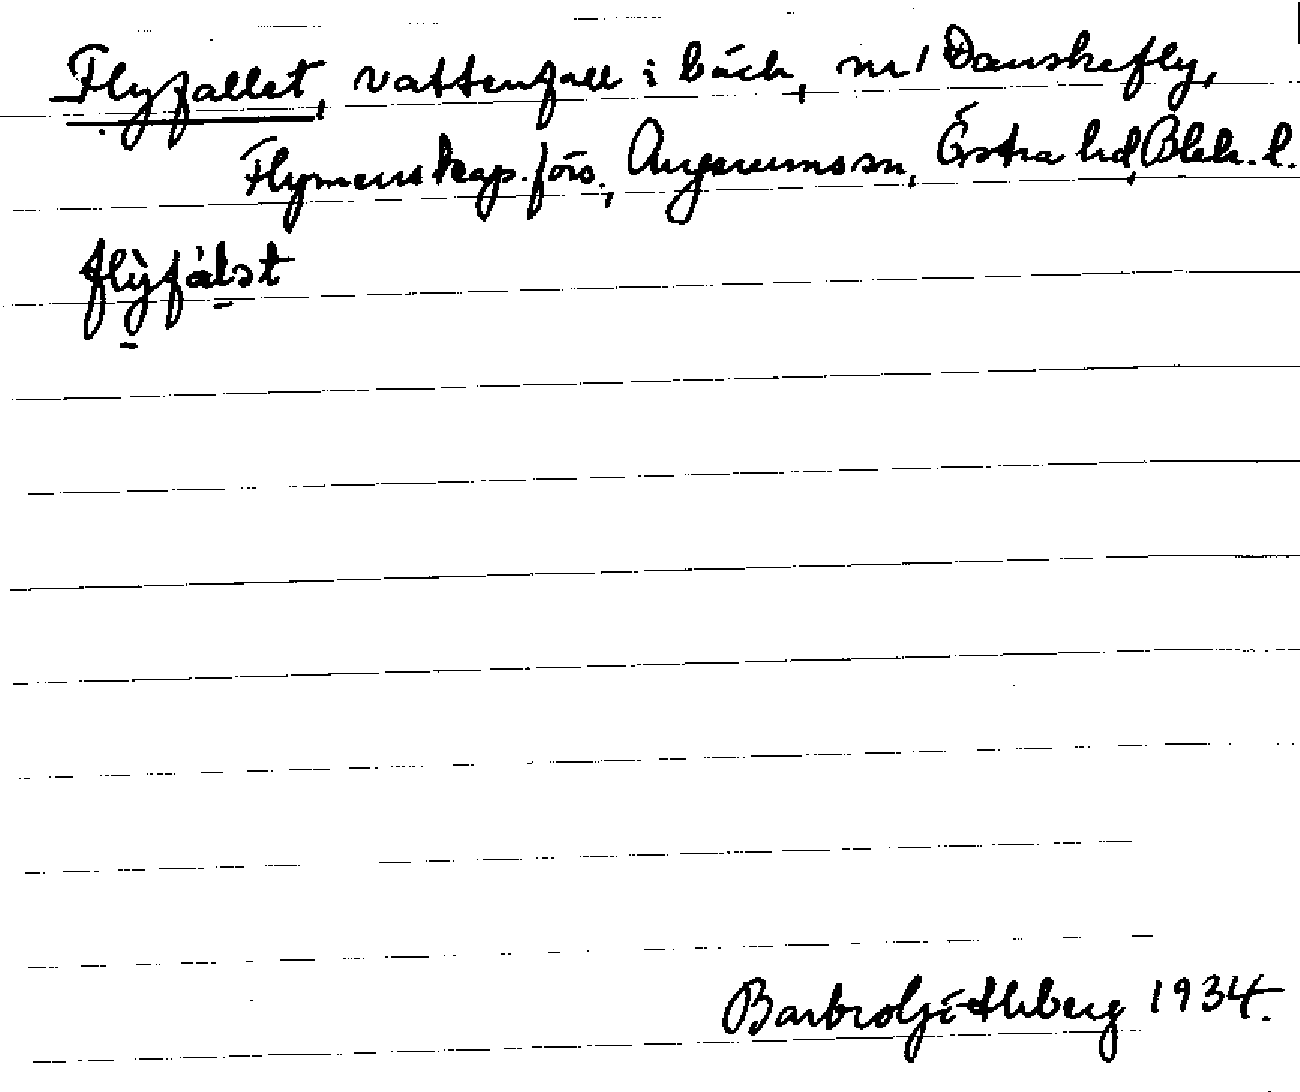 Flyfallet, vattenfall i bäck, nr 1 Danskefly,
Flymens kap. förs., Augerums sn, Östra hd, Blek. l.
flỳfàlət
Barbro 1934.